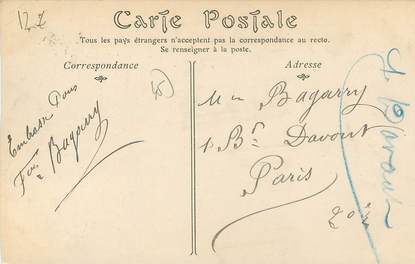 122
Carte Postale
Tous les pays étrangers n'acceptent pas la correspondance au recto.
Se renseigner à la poste.
Correspondance
Adresse
Bagarry
Bagarry
1 Bd Davout
Paris
20e
Davout